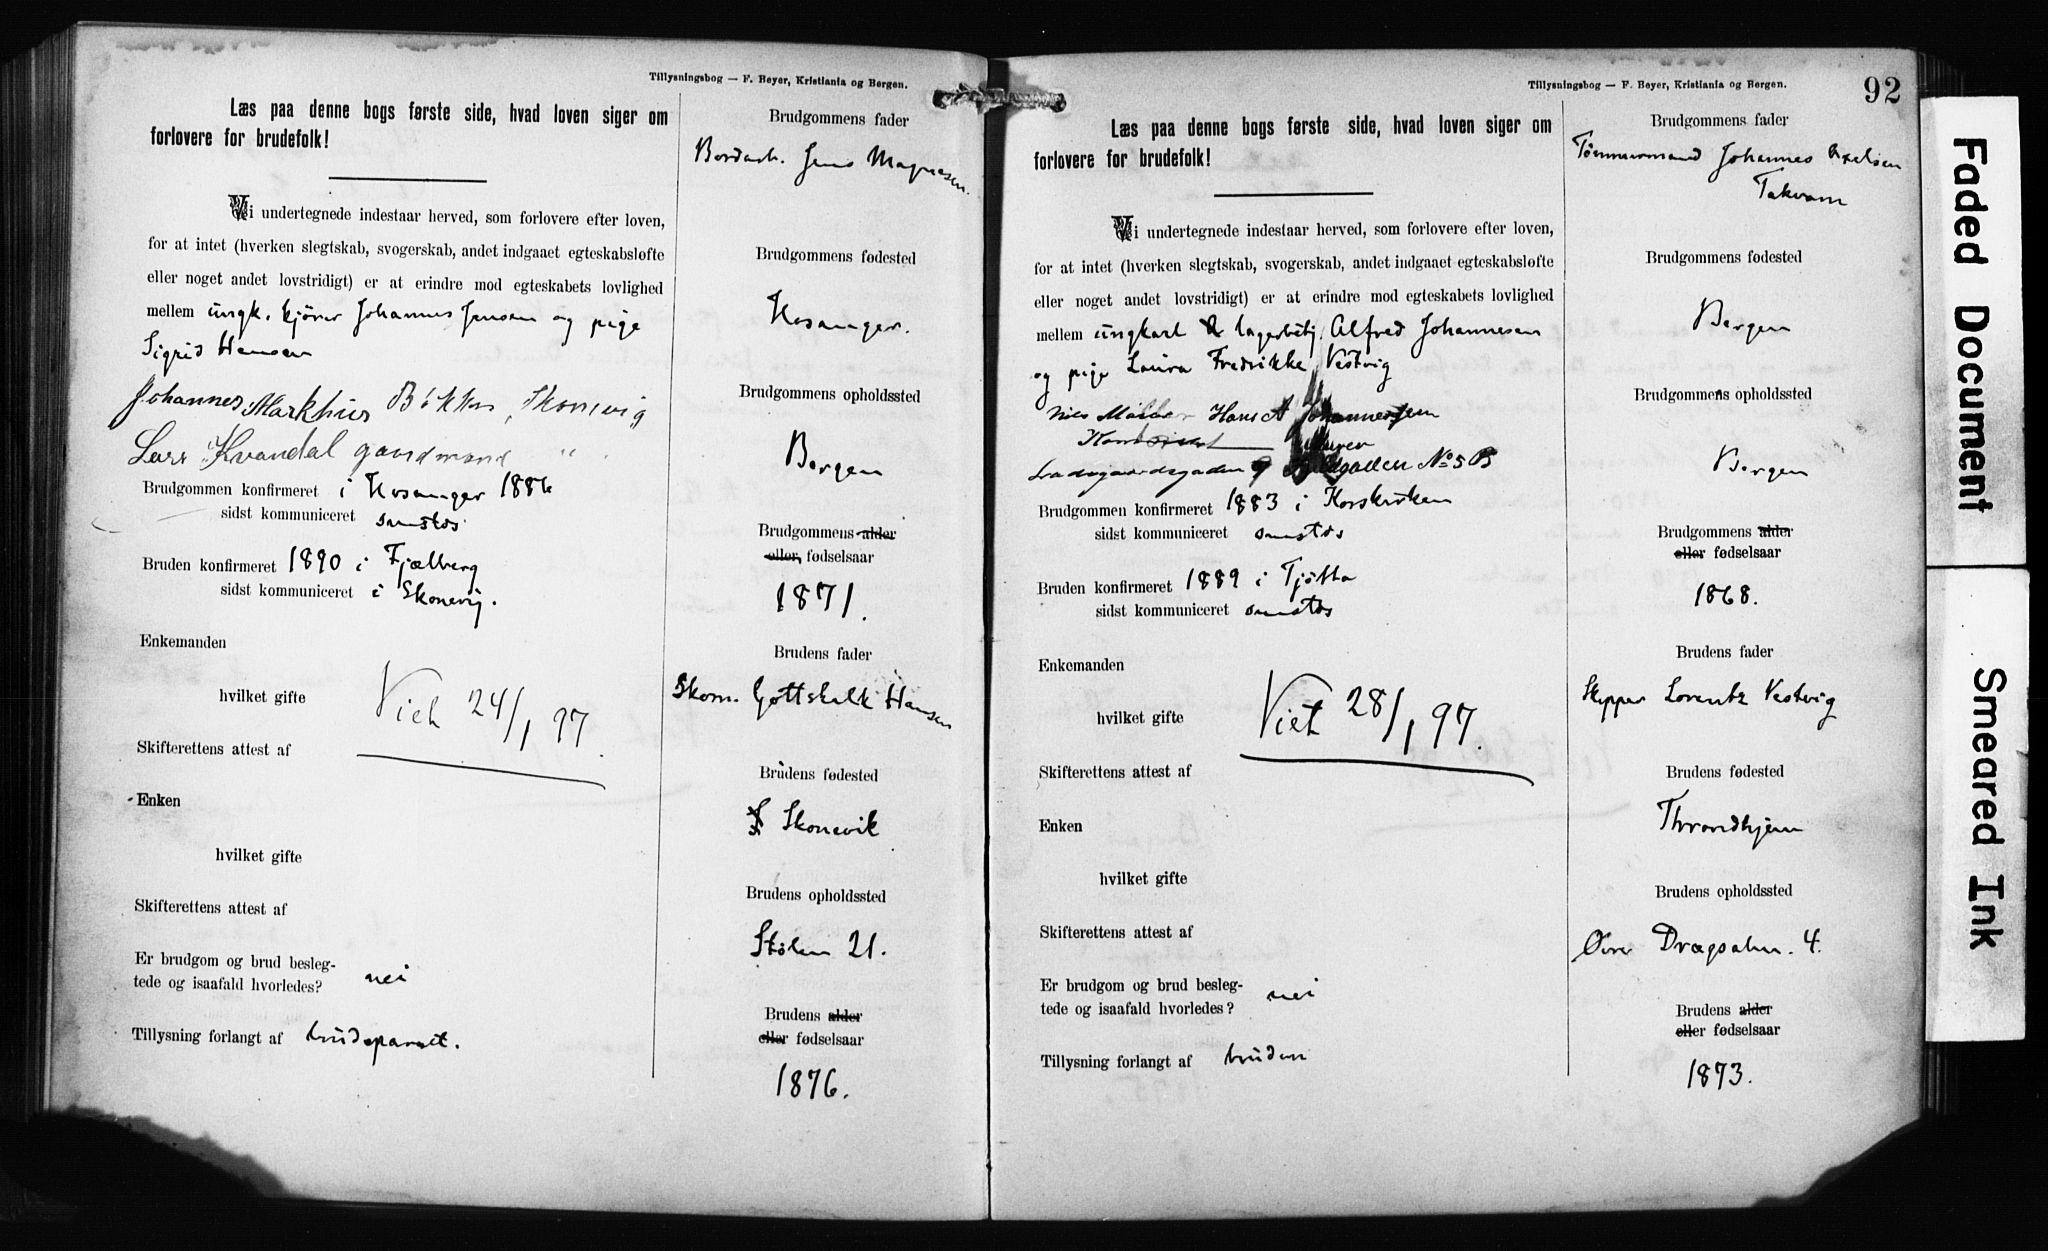 Tillysningsbog — F. Beyer, Kristiania og Bergen.
Læs paa denne bogs første side, hvad loven siger om
forlovere for brudefolk!
Vi undertegnede indestaar herved, som forlovere efter loven,
for at intet (hverken slegtskab, svogerskab, andet indgaaet egteskabsløfte
eller noget andet lovstridigt) er at erindre mod egteskabets lovlighed
mellem ungk. kjører Johannes Jensen og pige
Sigrid Hansen
Johannes Markhus Bøkker, Skonevig
Lars Kvandal gaardmand " .
Brudgommen konfirmeret i Hosanger 1886
sidst kommuniceret sammested
Bruden konfirmeret 1890 i Fjælberg
sidst kommuniceret i Skonevig.
Enkemanden
hvilket gifte
Viet 24/1 97.
Skifterettens attest af
Enken
hvilket gifte
Skifterettens attest af
Er brudgom og brud besleg-
tede og isaafald hvorledes? nei
Tillysning forlangt af brudeparret.
Brudgommens fader
Bordarb. Jens Magnesen.
Brudgommens fødested
Hosanger.
Brudgommens opholdssted
Bergen
Brudgommens alder
eller fødselsaar
1871.
Brudens fader
Skom. Gottskalk Hansen
Brudens fødested
Skonevik
Brudens opholdssted
Stølen 21.
Brudens alder
eller fødselsaar
1876.
Tillysningsbog — F. Beyer, Kristiania og Bergen.
92
Læs paa denne bogs første side, hvad loven siger om
forlovere for brudefolk!
Vi undertegnede indestaar herved, som forlovere efter loven,
for at intet (hverken slegtskab, svogerskab, andet indgaaet egteskabsløfte
eller noget andet lovstridigt) er at erindre mod egteskabets lovlighed
mellem ungkarl lagerbetj. Alfred Johannesen
og pige Laura Fredrikke Vestvig
Nils Hans A Johannessen
Murer
Ladegaardsgaden 9 No 5 B
Brudgommen konfirmeret 1883 i Korskirken
sidst kommuniceret sammested
Bruden konfirmeret 1889 i Tjøtta
sidst kommuniceret sammested
Enkemanden
hvilket gifte
Viet 28/1 97.
Skifterettens attest af
Enken
hvilket gifte
Skifterettens attest af
Er brudgom og brud besleg-
tede og isaafald hvorledes? nei
Tillysning forlangt af bruden
Brudgommens fader
Tømmermand Johannes Axelsen
Takvam
Brudgommens fødested
Bergen
Brudgommens opholdssted
Bergen
Brudgommens alder
eller fødselsaar
1868.
Brudens fader
Skipper Lorentz Vestvig
Brudens fødested
Throndhjem
Brudens opholdssted
Øvre Dragsalm. 4.
Brudens alder
eller fødselsaar
1873.
Faded Document
Smeared Ink